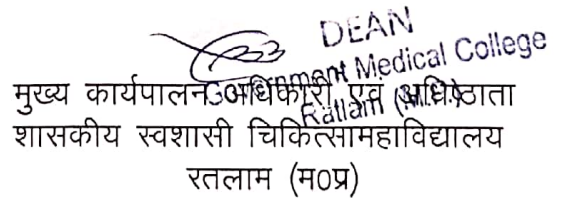 DEAN
Government Medical College
Ratlam (M.P.)
मुख्य कार्यपालन अधिकारी एवं अधिष्ठाता
शासकीय स्वशासी चिकित्सामहाविद्यालय
रतलाम (म0प्र)